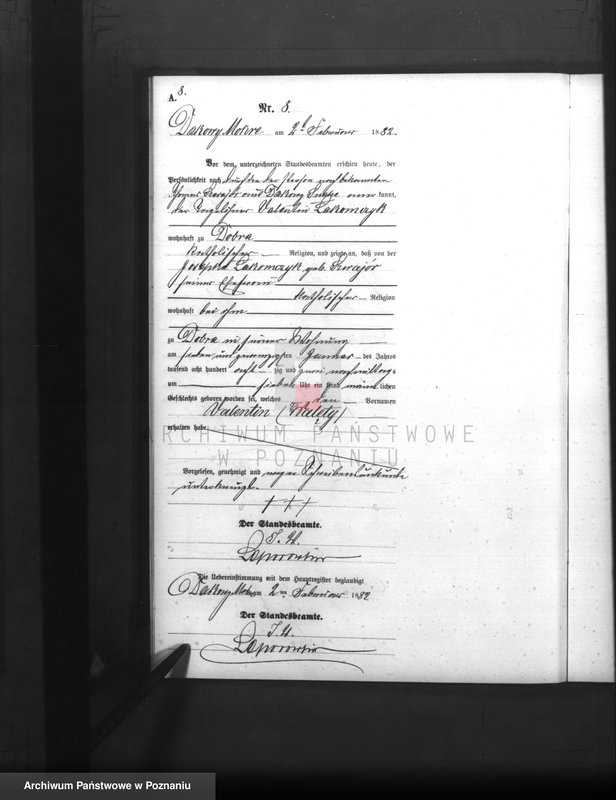 8.
A.
Nr. 8.
Dakowy Mokre am 2t Februar 1882.
Vor dem unterzeichneten Standesbeamten erschien heute, der
Persönlichkeit nach durch den der Person nach bekannten
Thomas Kwajór aus Dakowy Suche aner kannt,
der Valentin Lakomczyk
wohnhaft zu Dobra
katholischer Religion, und zeigte an, daß von der
Josepha Lakomczyk geb. Kwajór
seiner Ehefrau
katholischer Religion
wohnhaft bei ihm
zu Dobra in seiner Wohnung
am sieben und zwanzigsten Januar des Jahres
tausend acht hundert acht zig und zwei nachmittags
um sieben Uhr ein Kind männlichen
Geschlechts geboren worden sei, welches den Vornamen
Valentin (Walęty)
erhalten habe.
Vorgelesen, genehmigt und wegen Schreibensunkunde
unterkreuzt.
+ + +
Der Standesbeamte.
J. V.
Die Uebereinstimmung mit dem Hauptregister beglaubigt
Dakowy Mokre am 2ten Februar 1882
Der Standesbeamte.
J. V.
ARCHIWUM PAŃSTWOWE
W POZNANIU
Archiwum Państwowe w Poznaniu